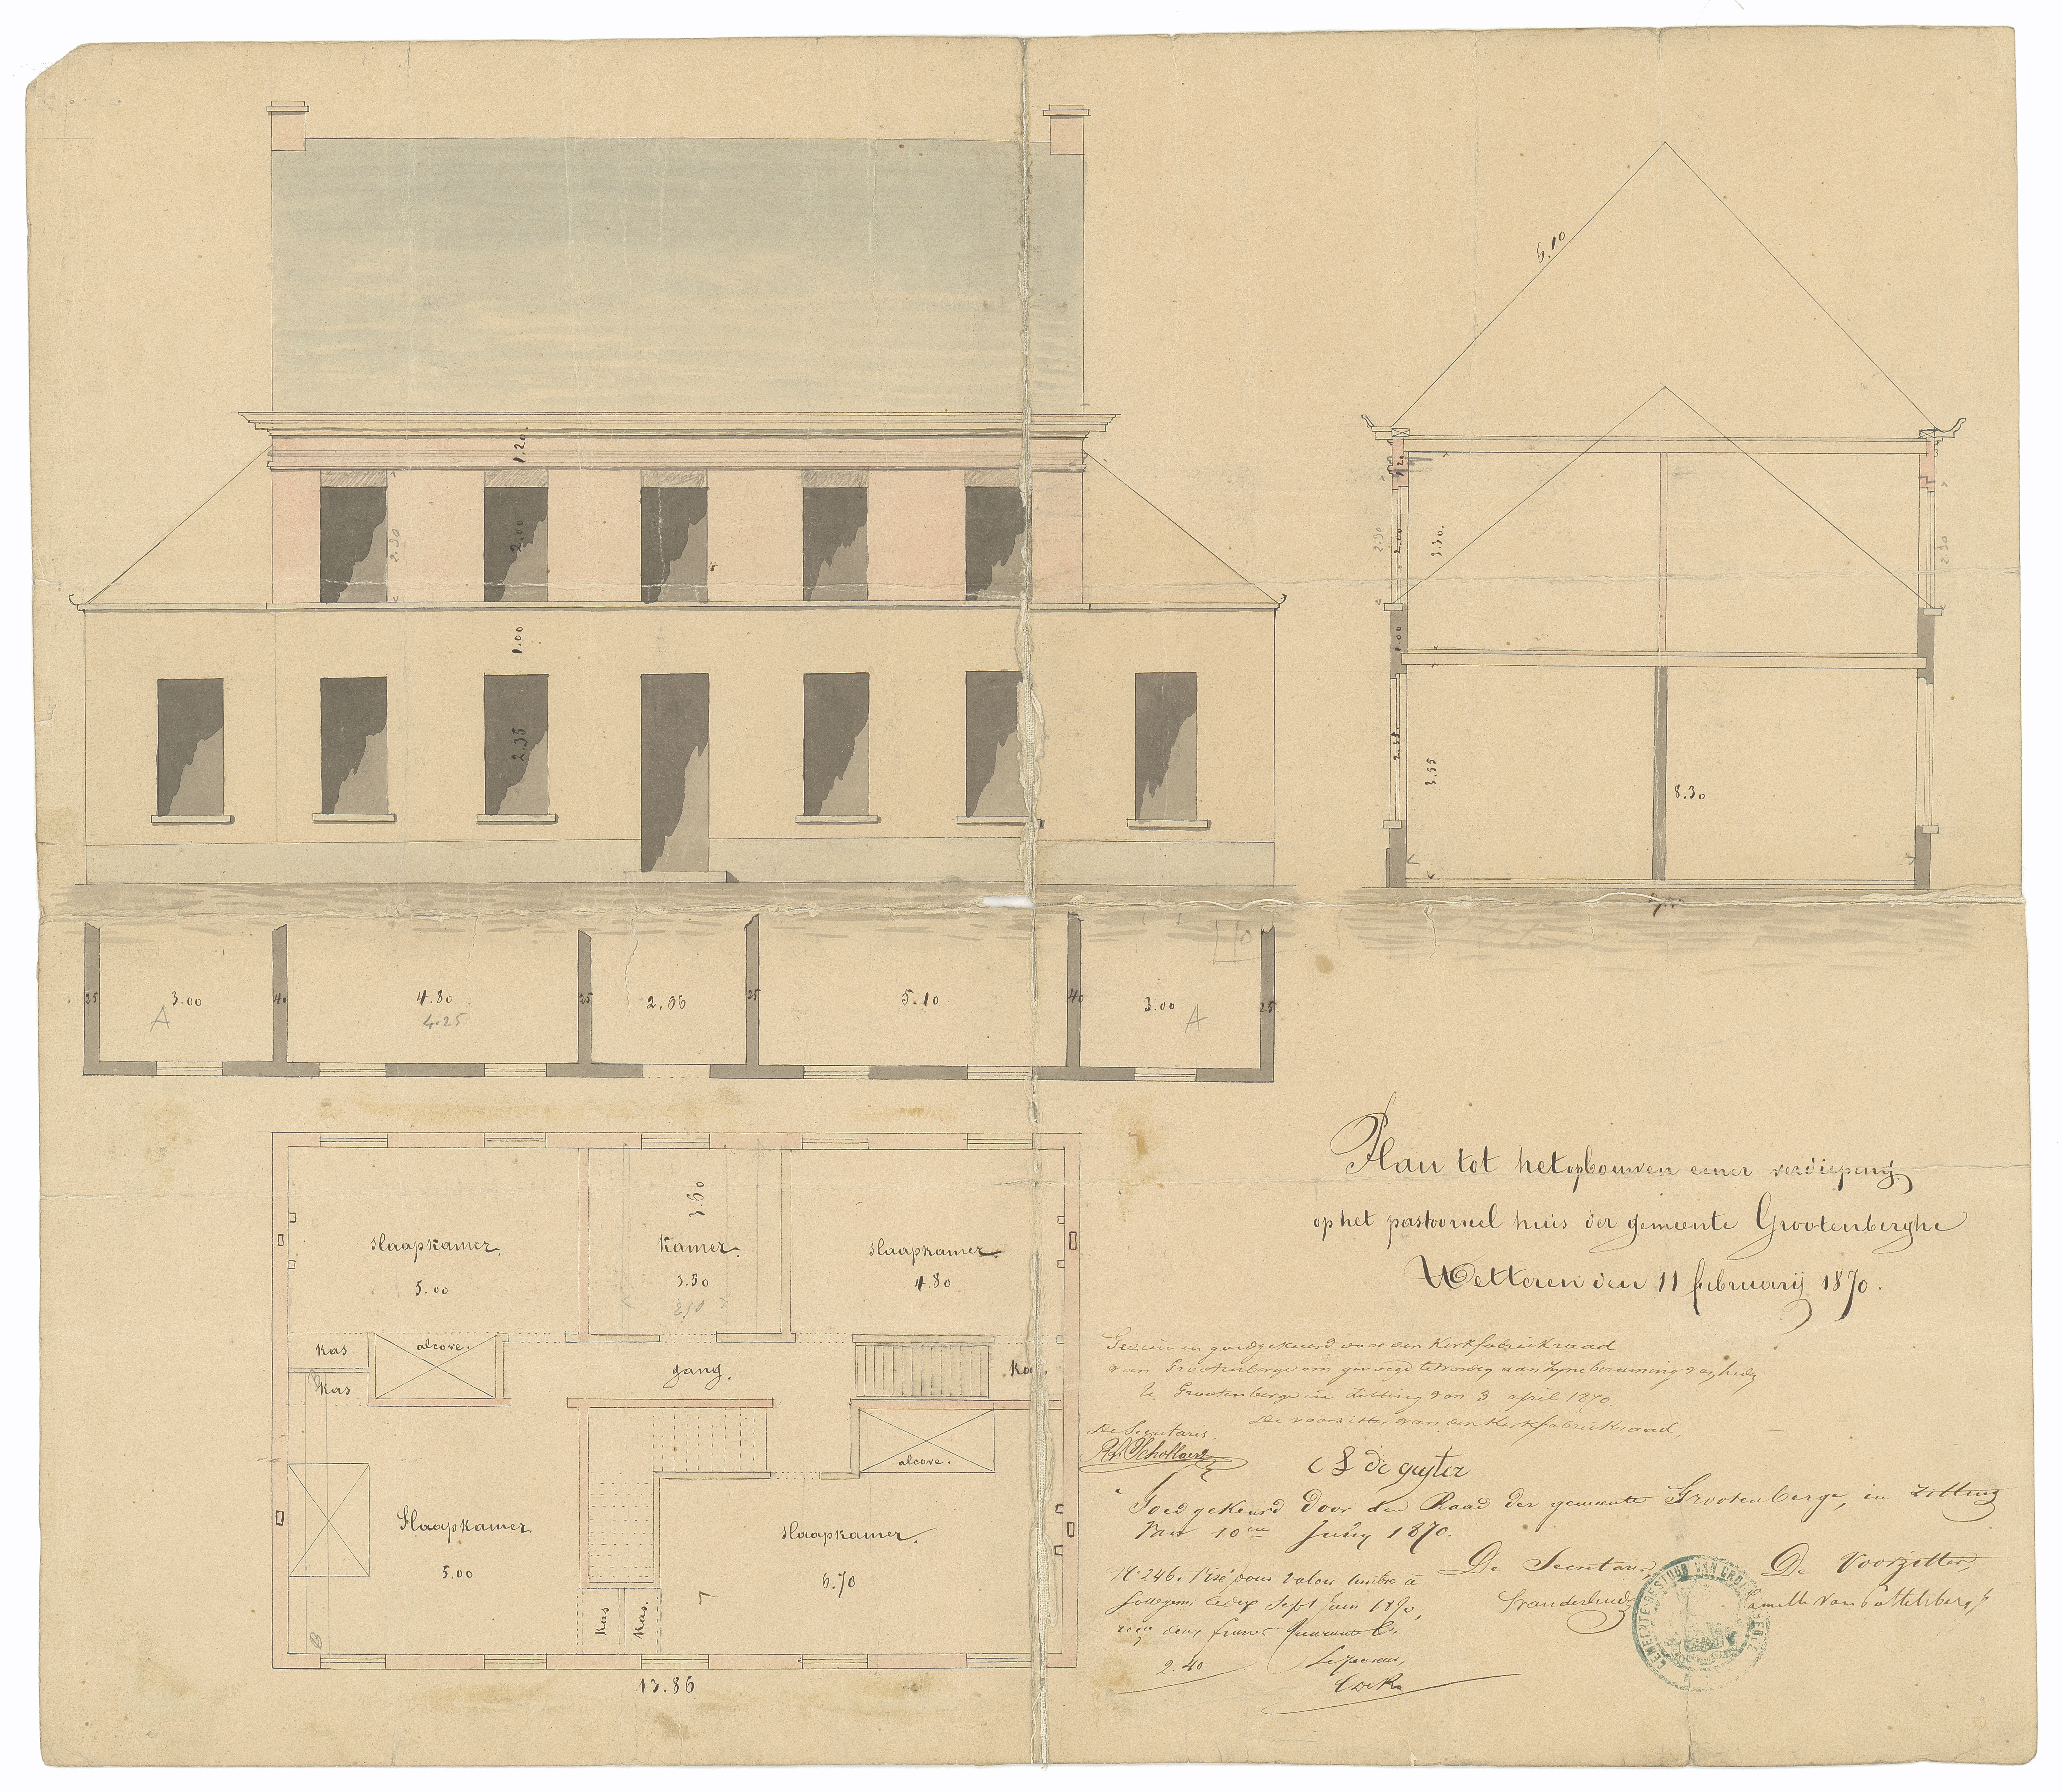 6.10
1.20
2.30
2.00
1.00
2.35
1.20
2.30
2.00
3.30.
2.30
1.00
2.35
3.55
8.30
25
3.00
40
4.80
25
2.06
25
5.10
40
3.00
25
A
4.25
A
slaapkamer.
5.00
Kamer.
3.60
3.50
slaapkamer.
4.80
kas
alcove.
kas
gang.
alcove.
Slaapkamer
5.00
slaapkamer.
6.70
kas
kas.
13.86
Plan tot het opbouwen eener verdieping
op het pastoreel huis der gemeente Grootenberghe
Wetteren den 11 februarij 1870.
Gezien en goedgekeurd door den Kerkfabriekraad
van Grootenberge om gevoegd te worden aan zyne beraming van heden
Te Grootenberge in zitting van 3 april 1870.
De voorzitter van den Kerkfabriekraad,
De Secretaris.
de guyter
Goedgekeurd door den Raad der gemeente Grootenberge, in zitting
van 10en Juny 1870.
De Secretaris,
De Voorzitter,
N° 246. Visé pour valoir timbre à
Sottegem, le dix Sept juin 1870,
reçu deux francs quarante Cs.
2.40
GEMEENTE-BESTUUR VAN